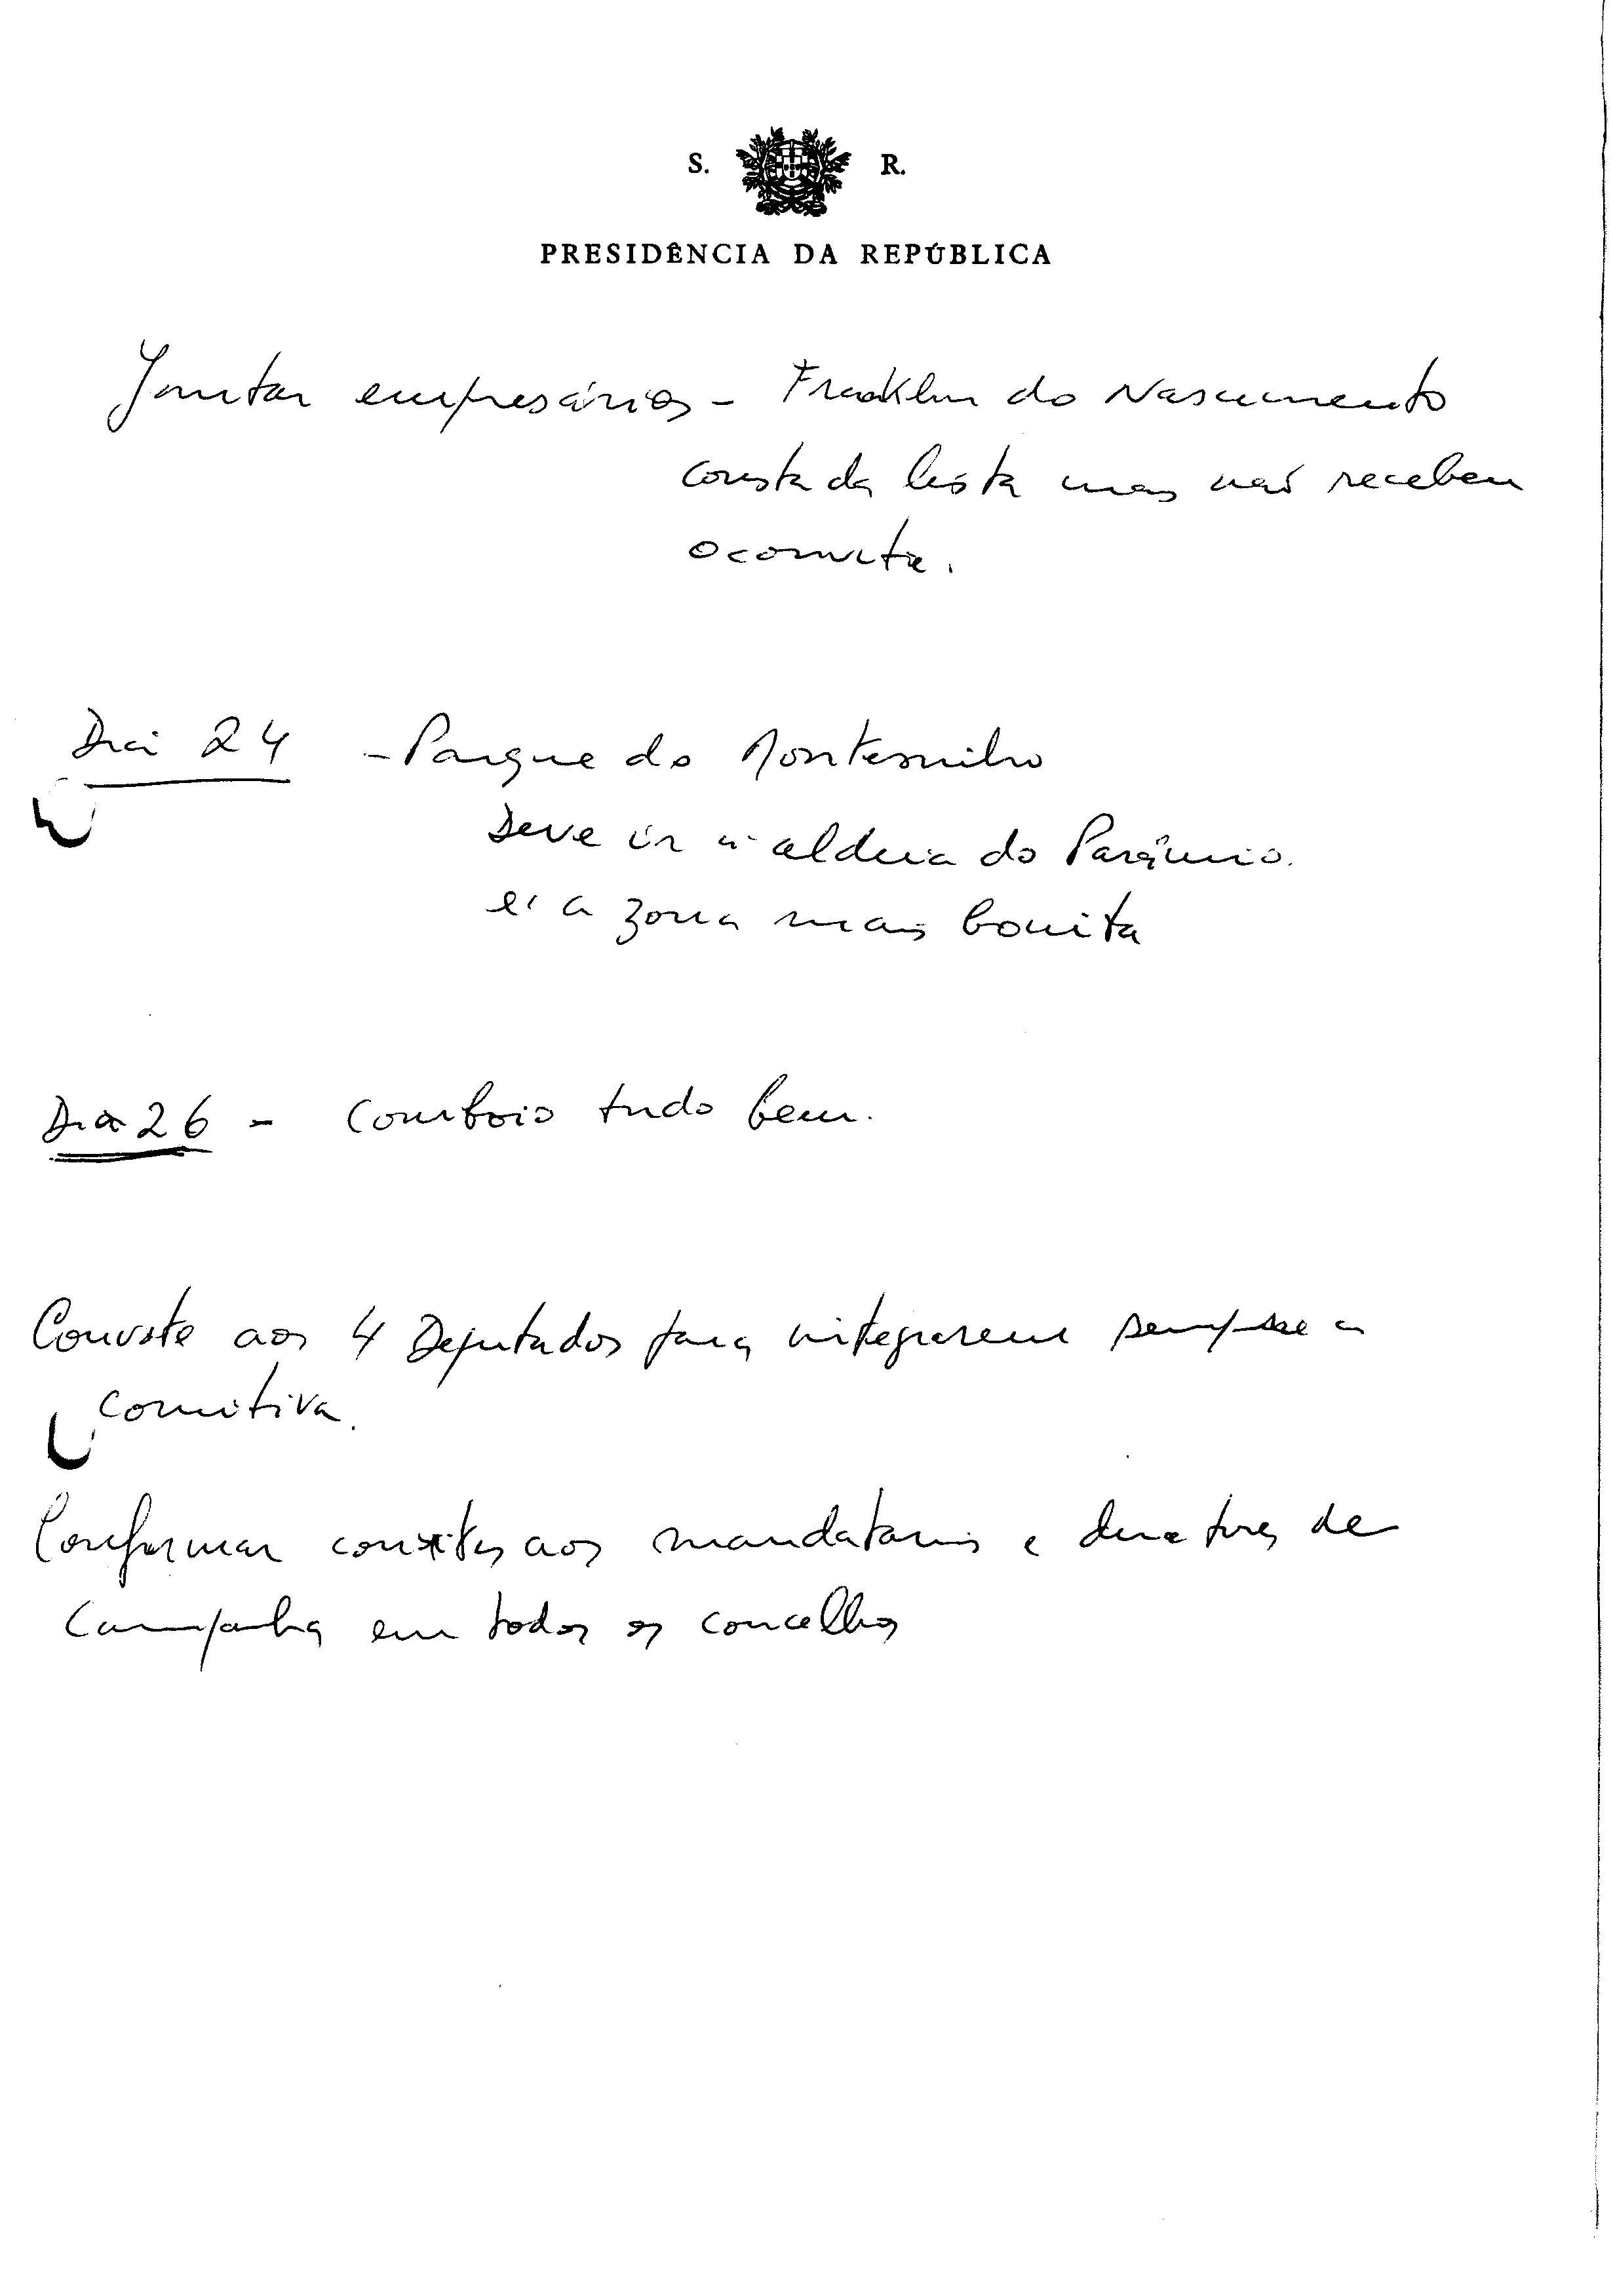 S. R.
PRESIDÊNCIA DA REPÚBLICA
Jantar empresários - Franklin do Nascimento
consta da lista mas não recebeu
o convite.
Dia 24 - Parque do Montesinho
Deve ir à aldeia do Parâmio.
é a zona mais bonita
Dia 26 - Comboio tudo bem.
Convite aos 4 Deputados para integrarem sempre a
comitiva.
Confirmar convites aos mandatários e diretores de
Campanha em todos os concelhos